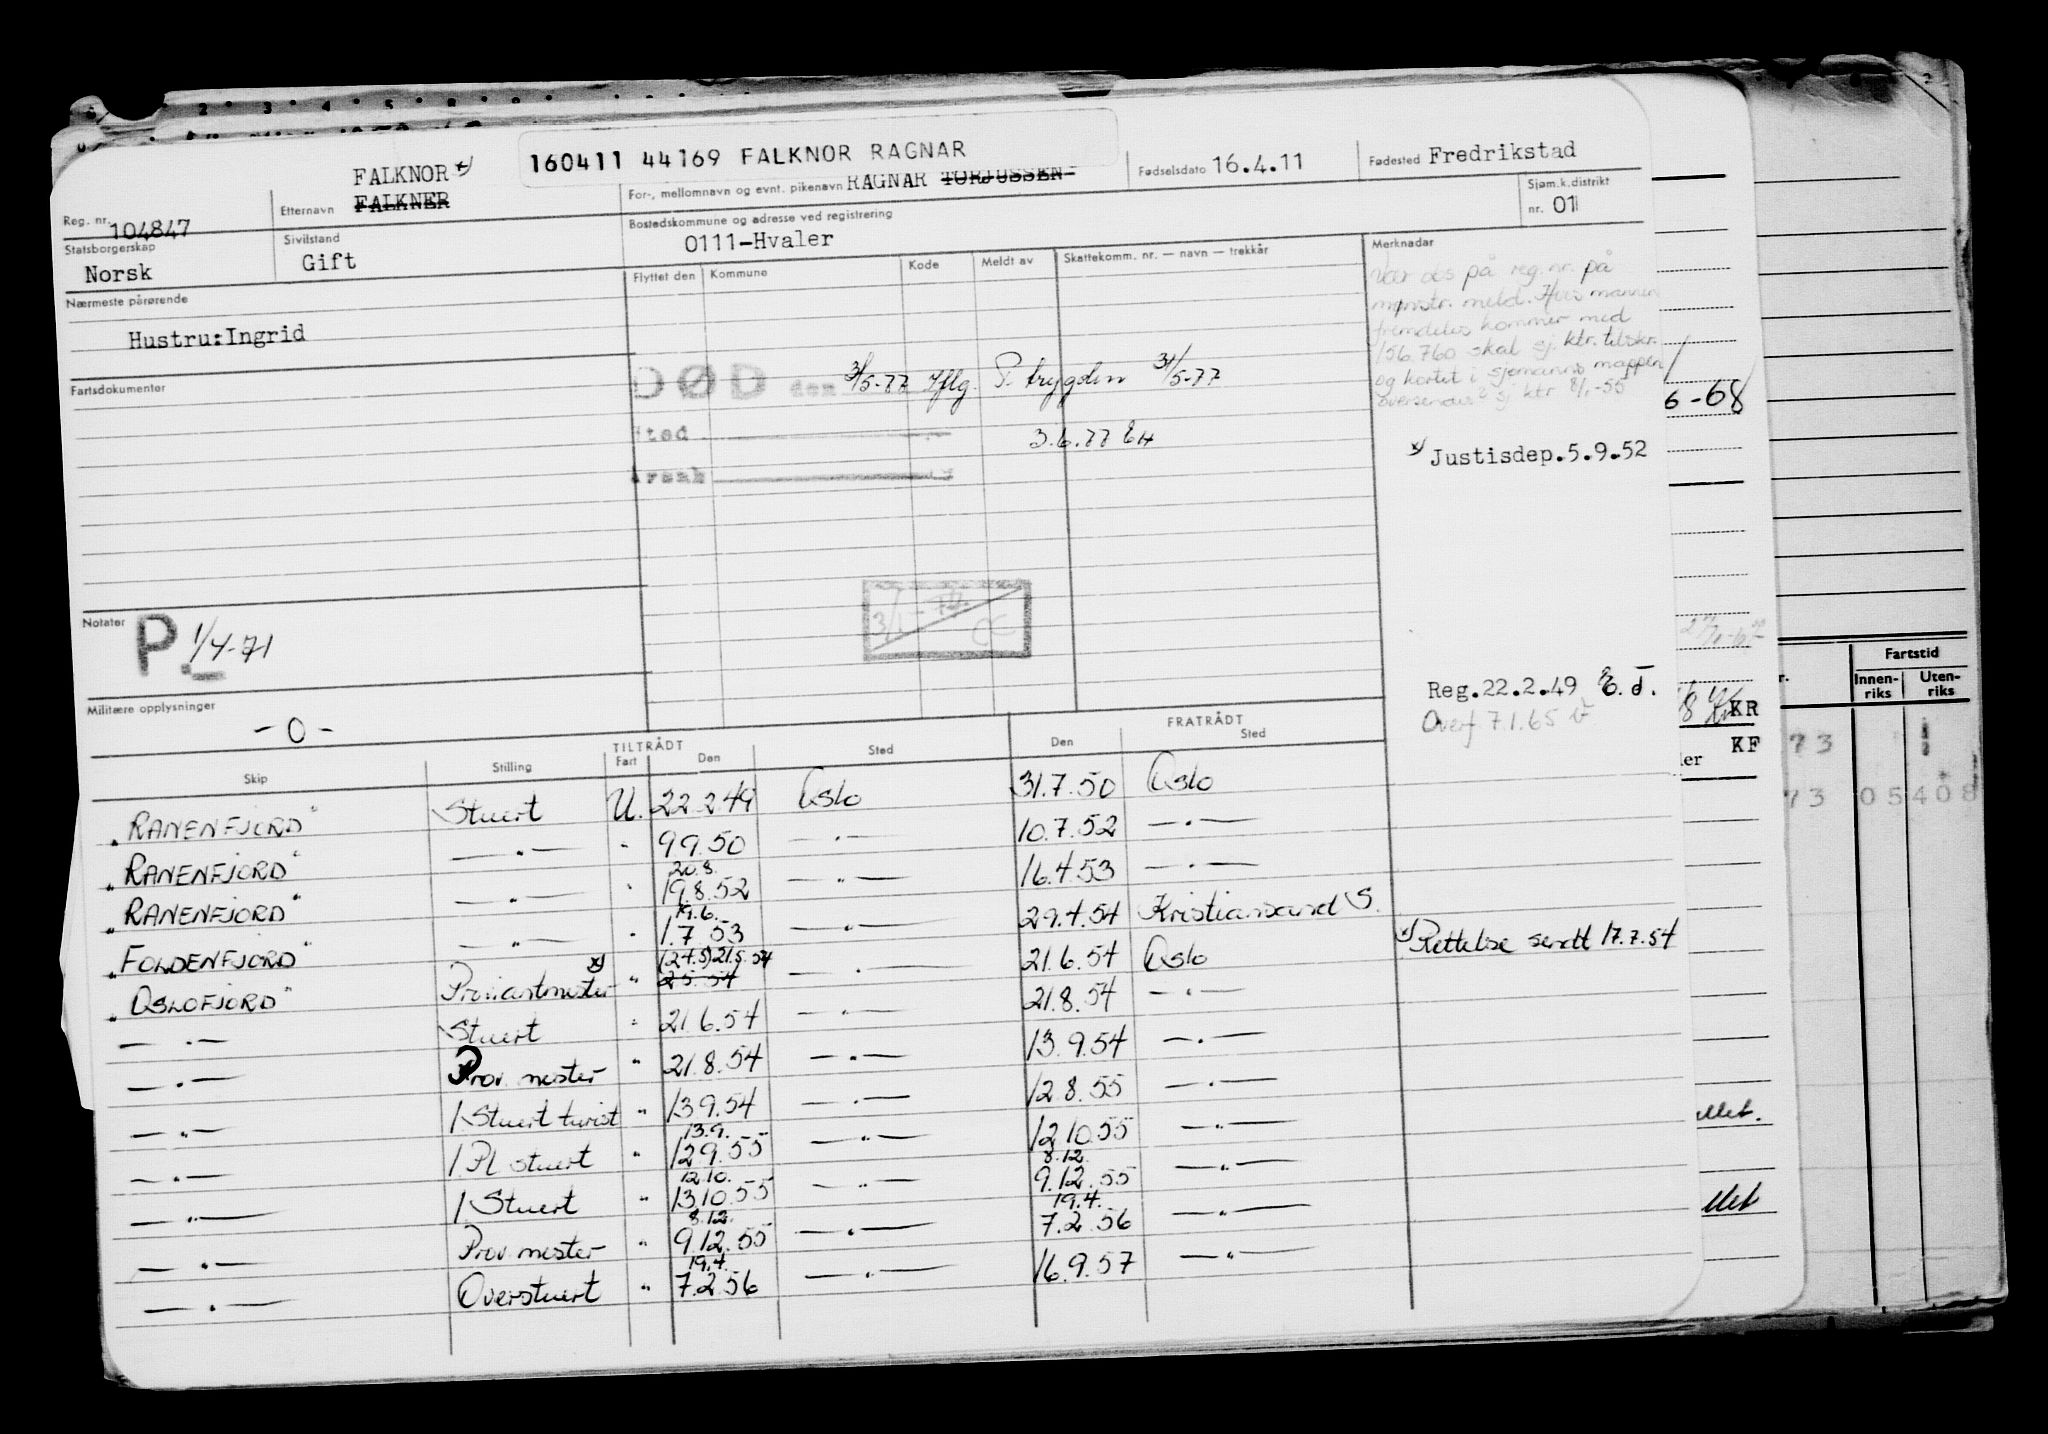 160411 44169 FALKNOR RAGNAR
FALKNOR x)
Reg. nr. 104847
Etternavn FALKNER
For-, mellomnavn og evnt. pikenavn RAGNAR TORJUSSEN
Fødselsdato 16.4.11
Fødested Fredrikstad
Statsborgerskap Norsk
Sivilstand Gift
Bostedskommune og adresse ved registrering 0111-Hvaler
Sjøm.k.distrikt nr. 01
Nærmeste pårørende
Hustru:Ingrid
Flyttet den Kommune Kode Meldt av Skattekomm. nr. — navn — trekkår
Merknader
Vær obs på reg.nr. på
mønstr. meld. Hvis mannen
fremdeles kommer med
156.760 skal sj. ktr. tilskr.
og kortet i sjømanns mappen
oversendes sj ktr 8/1-55
Fartsdokumenter
DØD den 31/5-77 iflg. P. trygden 31/5-77
Sted
3.6.77 EH
Årsak
x) Justisdep.5.9.52
6-68
Notater
P. 1/4-71
3/1-74
Reg.22.2.49 E.J.
Overf 7.1.65
Militære opplysninger
-0-
Fartstid
Innen-riks Uten-riks
KR
KF
73
73 05408
TILTRÅDT FRATRÅDT
Skip Stilling Fart Den Sted Den Sted
"RANENFJORD" Stuert U. 22.2.49 Oslo 31.7.50 Oslo
"RANENFJORD" —"— " 9.9.50 —"— 10.7.52 —"—
20.8.
"RANENFJORD" —"— " 19.8.52 —"— 16.4.53 —"—
19.6.
"FOLDENFJORD" —"— " 1.7.53 —"— 29.4.54 Kristiansand S.
"OSLOFJORD" Proviantmester x) " (24.5) 21.5.54 —"— 21.6.54 Oslo
2.5.54
x) Rettelse sendt 17.7.54
—"— Stuert " 21.6.54 —"— 21.8.54 —"—
—"— Prov. mester " 21.8.54 —"— 13.9.54 —"—
—"— 1 Stuert turist " 13.9.54 —"— 12.8.55 —"—
13.9.
—"— 1 Pl stuert " 12.9.55 —"— 12.10.55 —"—
12.10. 8.12.
—"— 1 Stuert " 13.10.55 —"— 9.12.55 —"—
8.12. 19.4.
—"— Prov. mester " 9.12.55 —"— 7.2.56 —"—
19.4.
—"— Overstuert " 7.2.56 —"— 16.9.57 —"—